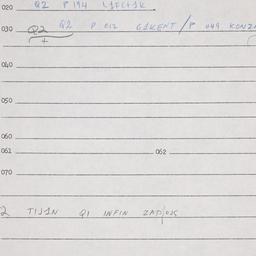 020 Q2 P 194
030 Q2 Q2 P 012 GIKENT / P 049 KONZ
+
040
050
060
061 062
070
2 TIJIN Q1 INFIN ZAP/OK